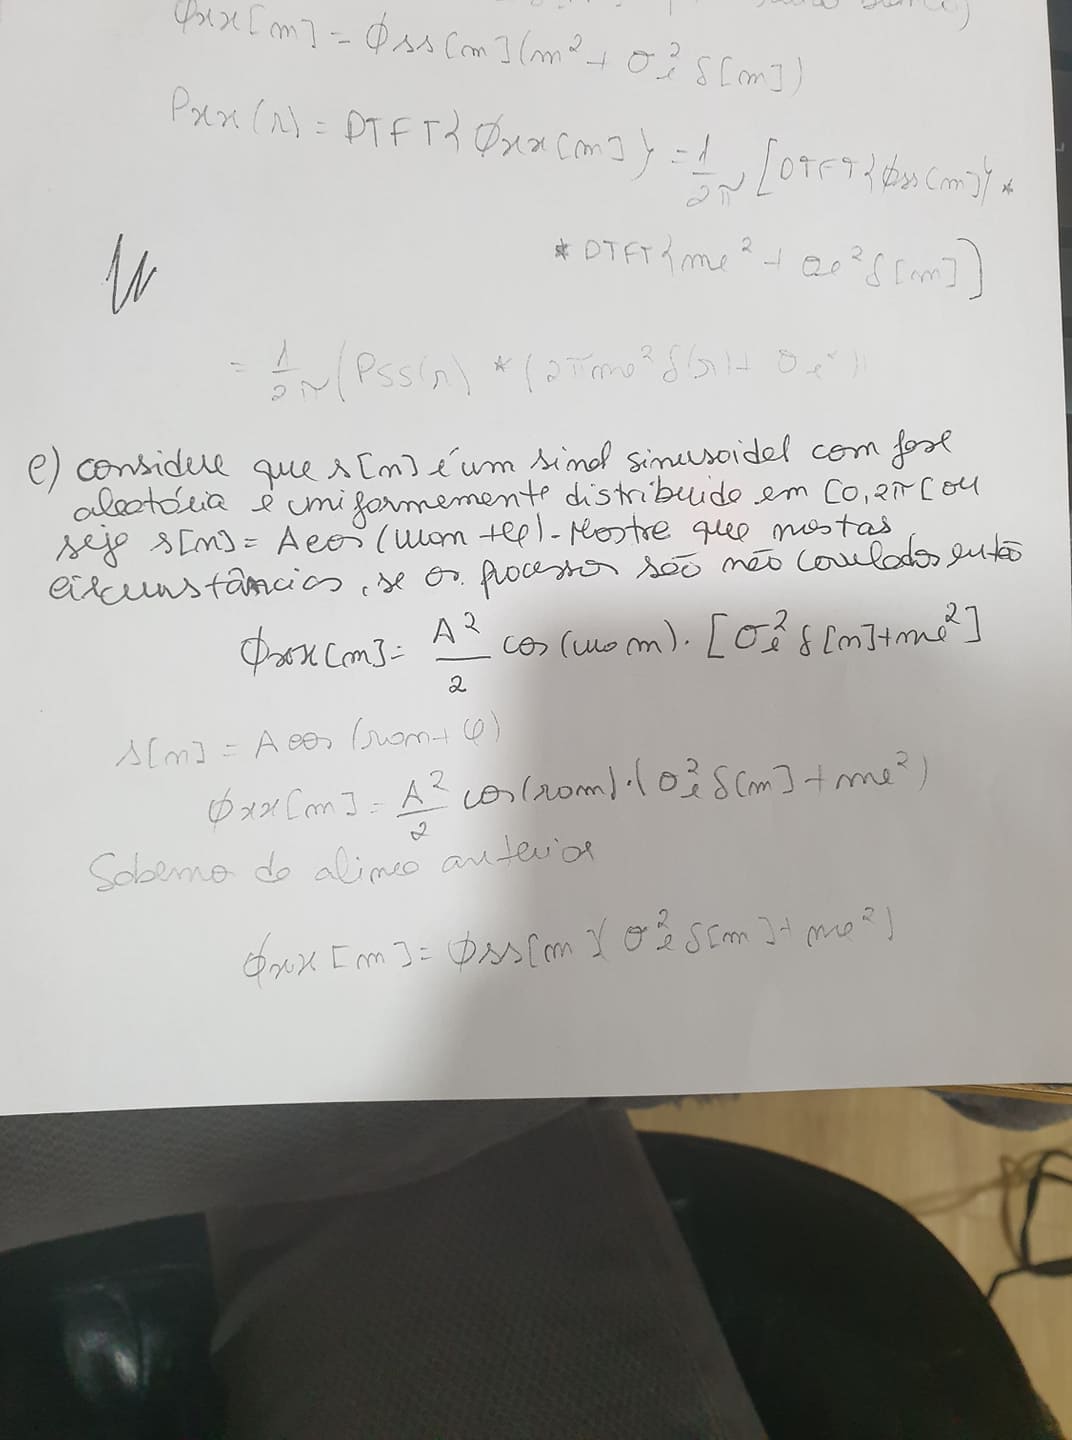 ϕxx[m] = ϕss[m](m² + σe² δ[m])
Pxx(Ω) = DTFT{ϕxx[m]} = 1/2π [DTFT{ϕss[m]} *
* DTFT{me² + σe² δ[m]}]
= 1/2π (Pss(Ω) * (2π me² δ(Ω) + σe²))
e) considere que s[n] é um sinal sinusoidal com fase
aleatória e uniformemente distribuida em [0, 2π[ ou
seja s[n] = A cos(ωon + φ). Mostre que nestas
circunstâncias, se os processos são não correlados então
ϕxx[m] = A²/2 cos(ωo m) . [σe² δ[m] + me²]
s[n] = A cos(Ωon + φ)
ϕxx[m] = A²/2 cos(Ωom) . (σe² δ[m] + me²)
Sabemo da alinea anterior
ϕxx[m] = ϕss[m](σe² δ[m] + me²)